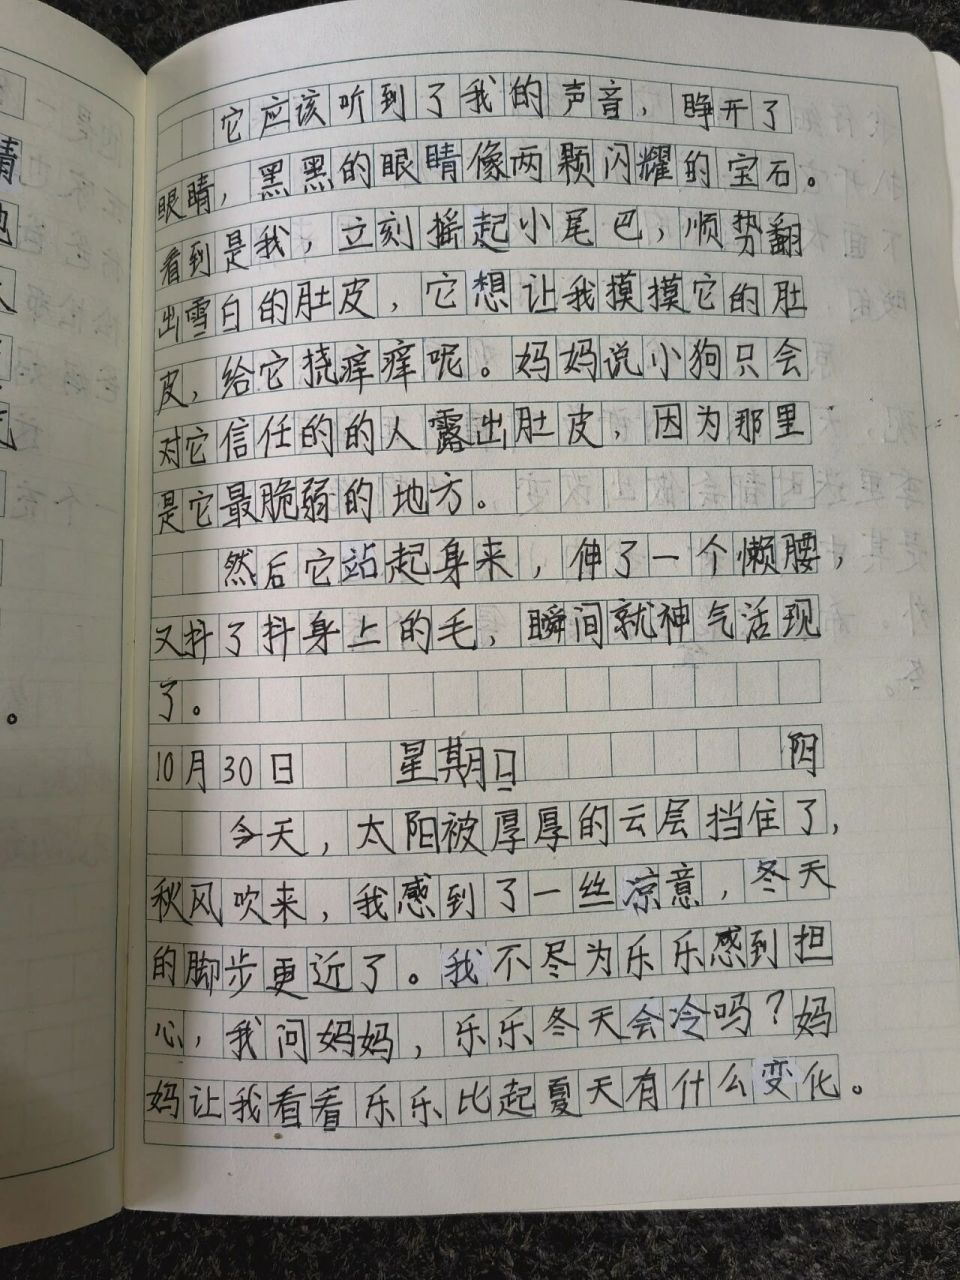 它应该听到了我的声音，睁开了
眼睛，黑黑的眼睛像两颗闪耀的宝石。
看到是我，立刻摇起小尾巴，顺势翻
出雪白的肚皮，它想让我摸摸它的肚
皮，给它挠痒痒呢。妈妈说小狗只会
对它信任的的人露出肚皮，因为那里
是它最脆弱的地方。
然后它站起身来，伸了一个懒腰，
又抖了抖身上的毛，瞬间就神气活现
了。
10月30日 星期日 阴
今天，太阳被厚厚的云层挡住了，
秋风吹来，我感到了一丝凉意，冬天
的脚步更近了。我不尽为乐乐感到担
心，我问妈妈，乐乐冬天会冷吗？妈
妈让我看看乐乐比起夏天有什么变化。